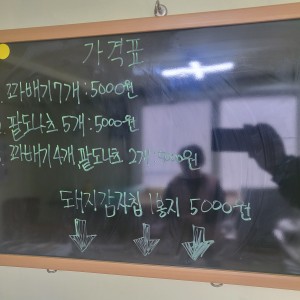 가격표
1. 꽈배기 7개 : 5000원
2. 팥도나츠 5개 : 5000원
3. 꽈배기 4개, 팥도나츠 2개 5000원
돼지감자칩 1봉지 5000원